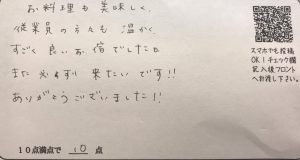 お料理も美味しく、
従業員の方々も 温かく、
すごく良いお宿でした。
また必ず来たいです!!
ありがとうございました!!
10点満点で 10 点
スマホでも投稿
OK!チェック欄
記入後フロント
へお渡し下さい。